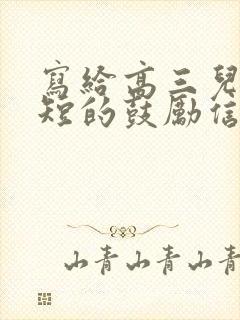 寫給高三兒
短的鼓勵信
山青山青山青